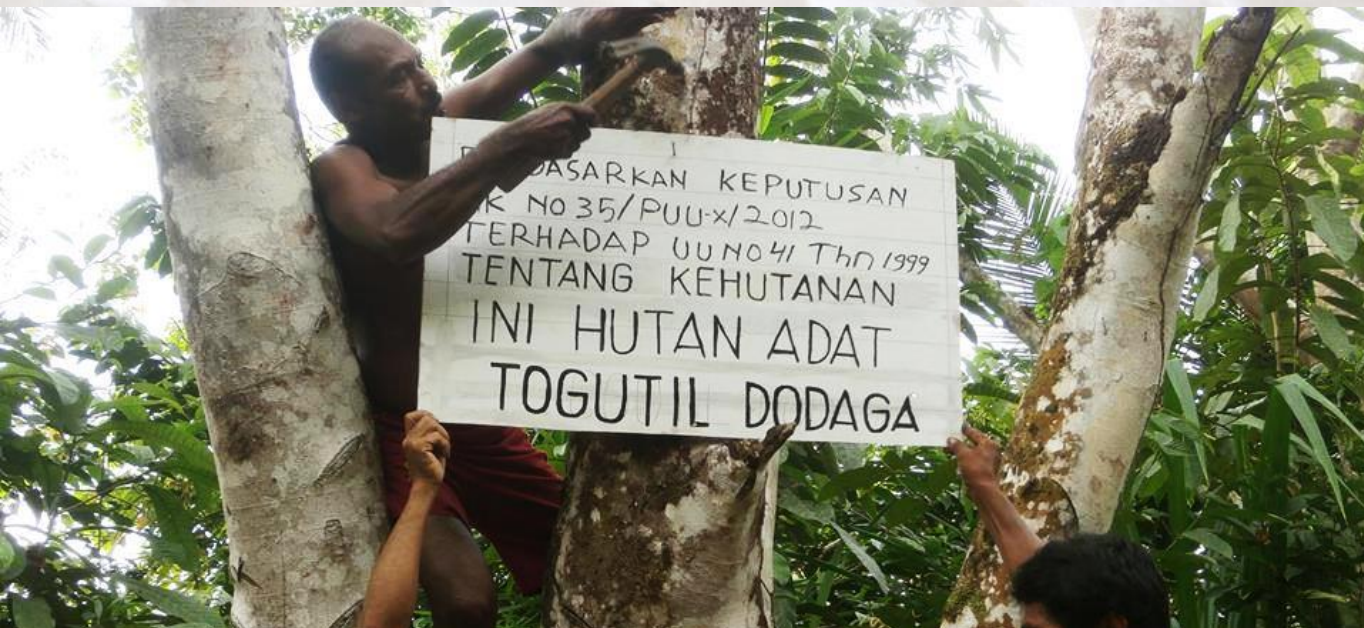 KEPUTUSAN
NO 35/PUU-X/2012
TERHADAP UU NO 41 Thn 1999
TENTANG KEHUTANAN
INI HUTAN ADAT
TOGUTIL DODAGA